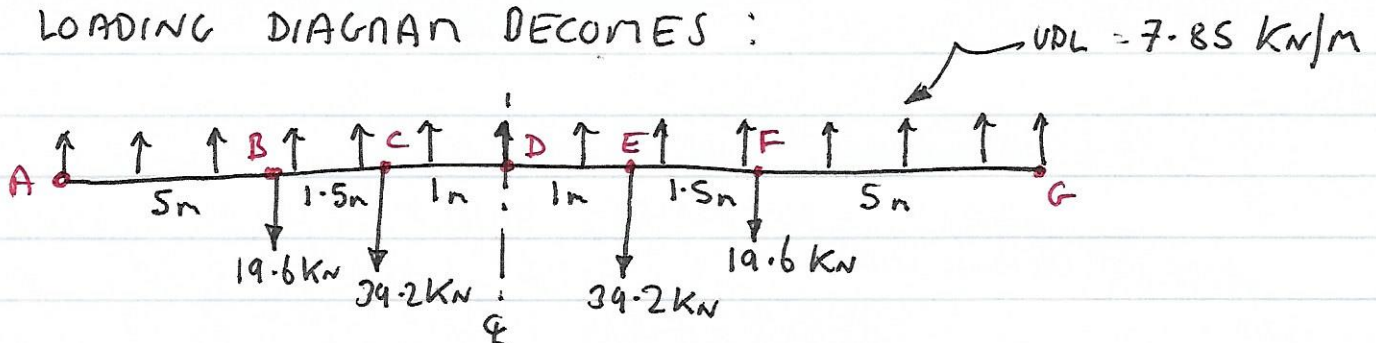 LOADING DIAGRAM BECOMES :
UDL = 7.85 KN/M
A B C D E F G
5m 1.5m 1m 1m 1.5m 5m
19.6 KN 39.2 KN 39.2 KN 19.6 KN
℄